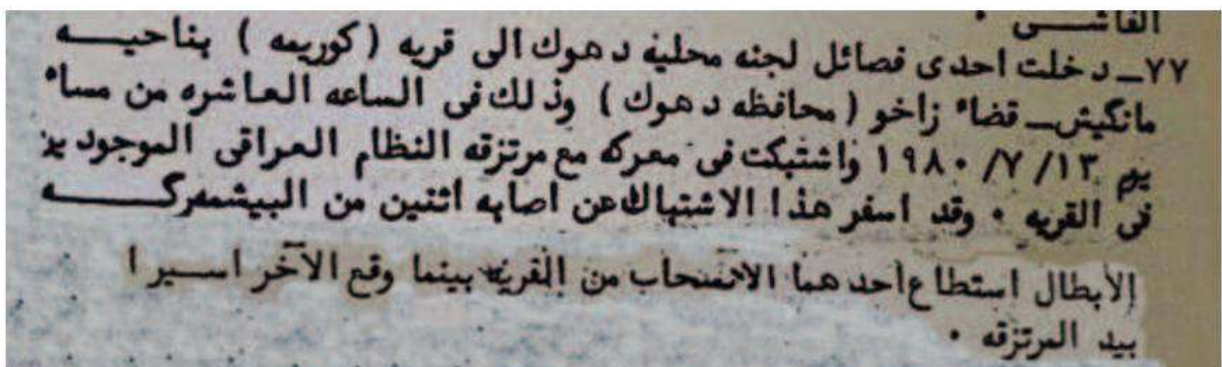 الفاشـــى •
٧٧ــ دخلت احدى فصائل لجنه محليه دهوك الى قريه ( كوريمه ) بناحيـــه
مانگيش ــ قضاء زاخو ( محافظه دهوك ) وذلك فى الساعه العاشره من مساء
يوم ١٣ /٧ /١٩٨٠ واشتبكت فى معركه مع مرتزقه النظام العراقى الموجودين
فى القريه • وقد اسفر هذا الاشتباك عن اصابه اثنين من البيشمهرگـــه
الابطال استطاع احدهما الانسحاب من القريه بينما وقع الآخر اسـيرا
بيد المرتزقه •